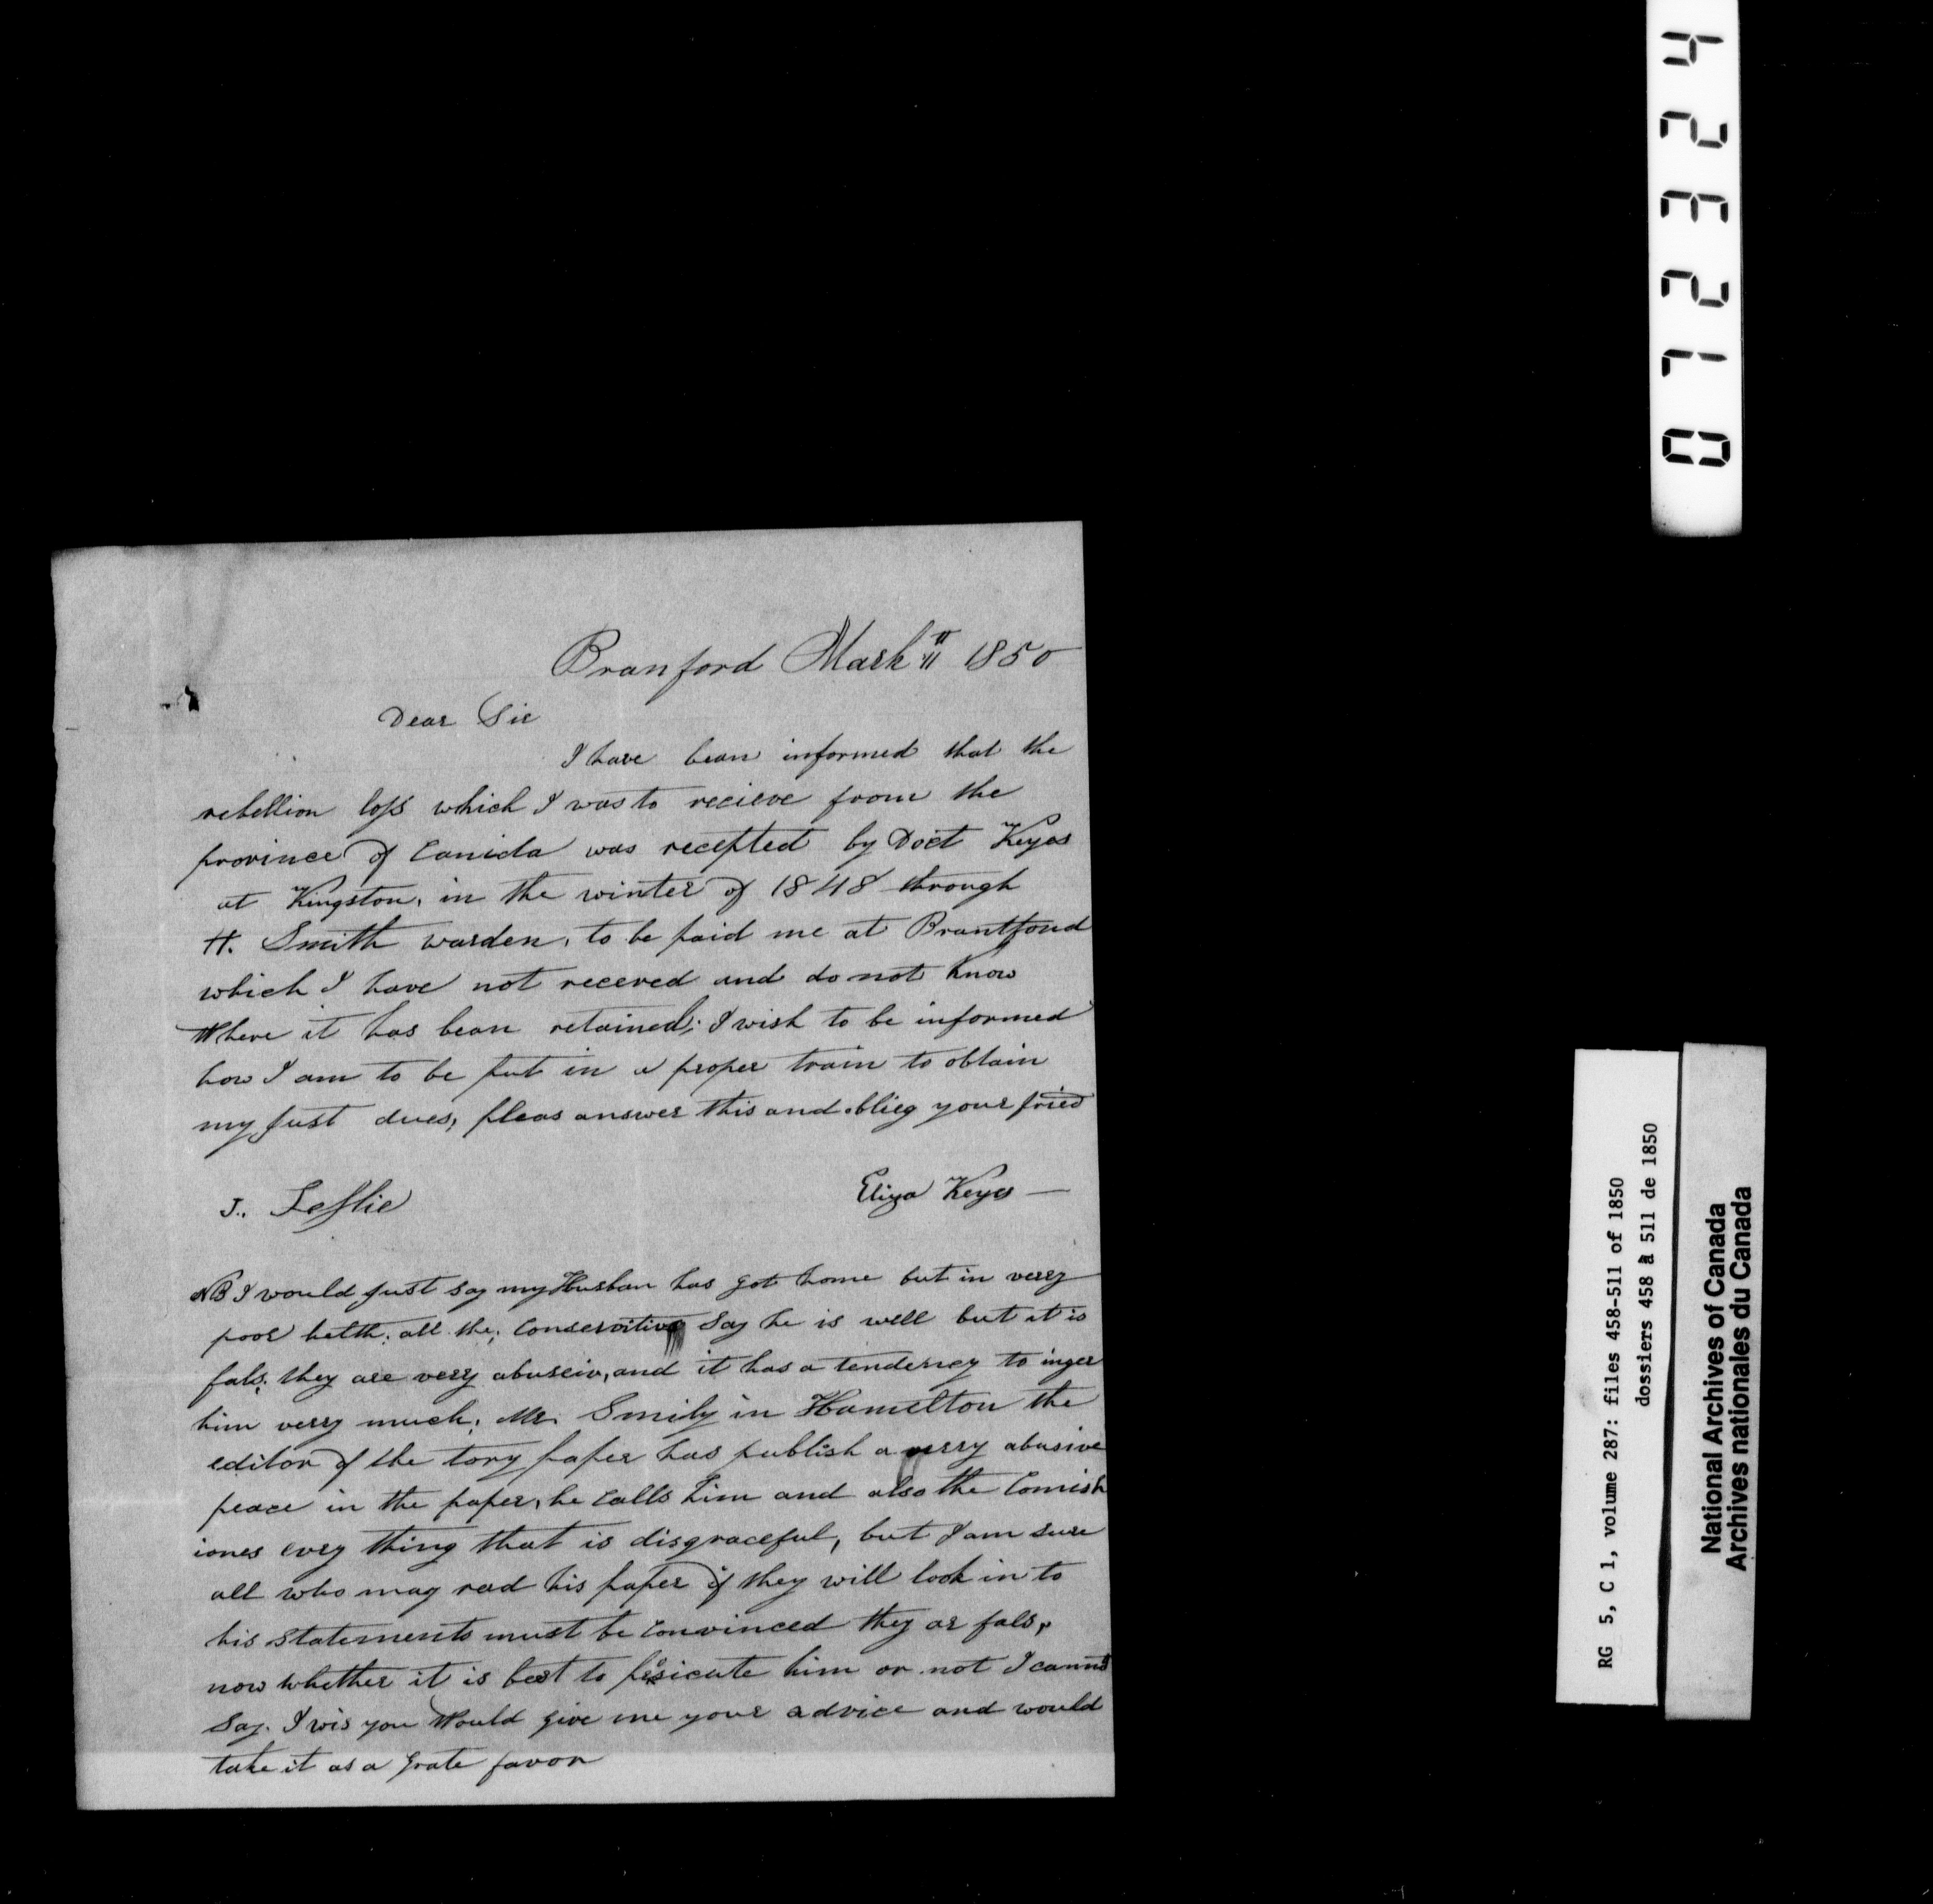 Branford Mark 11 1850
Dear Sir
I have bean informed that the
rebellion loss which I was to recieve from the
province of Canida was recepted by Doct Keyes
at Kingston, in the winter of 1848 through
H. Smith warden, to be paid me at Brantford
which I have not recered and do not know
Where it has bean retained; I wish to be informed
how I am to be put in a proper train to obtain
my just dues, pleas answer this and oblieg your fried
J. Leslie
Eliza Keyes
NB I would just say my Husban has got home but in verry
poor helth, all the, Conservitive Say he is well but it is
fals, they are very abuseiv, and it has a tendency to inger
him verry much, Mr. Smily in Hamelton the
editor of the tory paper has publish a verry abusive
peace in the paper, he Calls him and also the Comish
iones evry thing that is disgraceful, but I am sure
all who may read his paper if they will look in to
his statements must be Convinced they ar fals,
now whether it is best to him or not I cannot
Say. I wis you Would give me your advice and would
take it as a grate favor
072324
RG 5, C 1, volume 287: files 458-511 of 1850
dossiers 458 à 511 de 1850
National Archives of Canada
Archives nationales du Canada